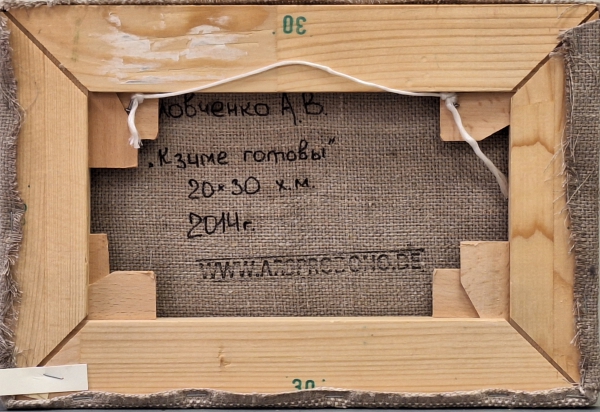 30
овченко А.В.
„К зиме готовы"
20×30 х.м.
2014г.
WWW.ARSPROBONO.BE
30